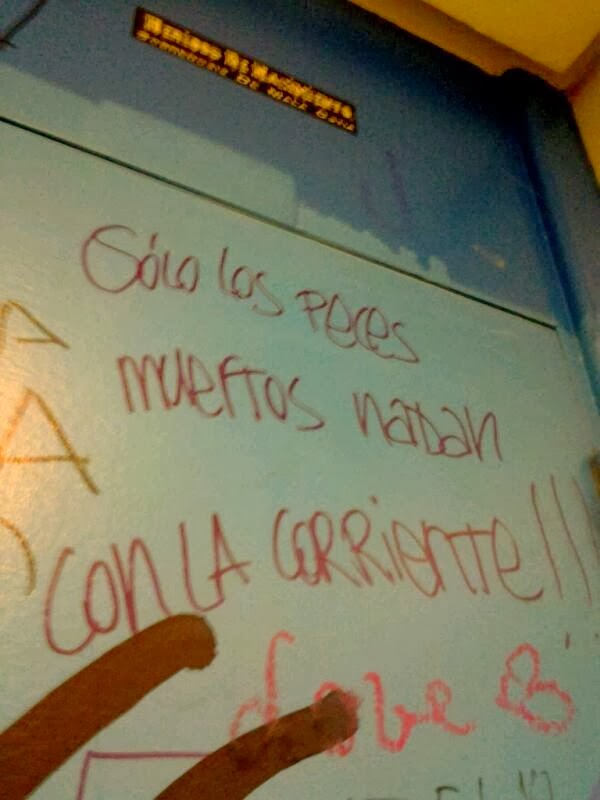 Sólo los peces
muertos nadan
con LA CORRiente!!!
Love B